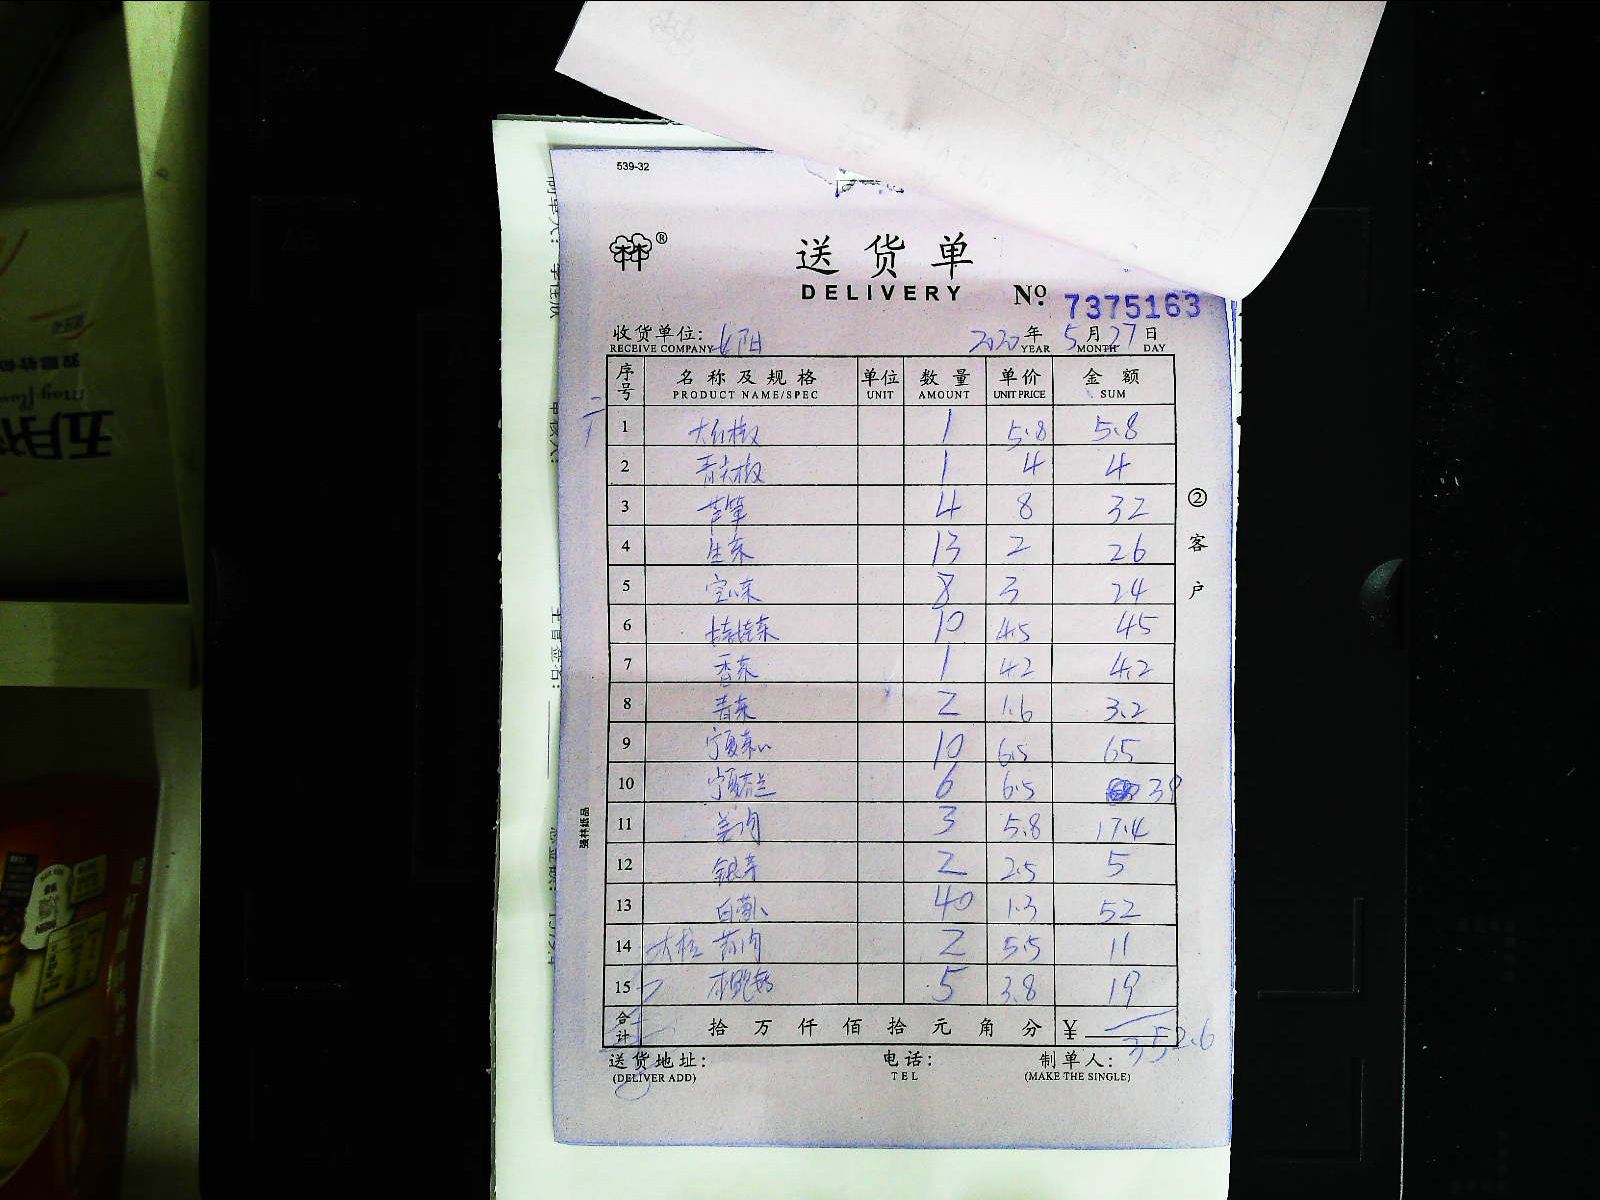 539-32
林®
送货单
DELIVERY
No. 7375163
收货单位: 沈阳 2020年 5月27日
RECEIVE COMPANY YEAR MONTH DAY
序号 名称及规格 单位 数量 单价 金额
PRODUCT NAME/SPEC UNIT AMOUNT UNIT PRICE SUM
1 大红椒 1 5.8 5.8
2 青尖椒 1 4 4
3 苦笋 4 8 32
4 生菜 13 2 26
5 8 3 24
6 10 4.5 45
7 香菜 1 4.2 4.2
8 青菜 2 1.6 3.2
9 宁夏菜心 10 6.5 65
10 宁夏芥兰 6 6.5 39
11 3 5.8 17.4
12 银芽 2 2.5 5
13 白萝卜 40 1.3 52
14 2 5.5 11
15 5 3.8 19
合计 拾万仟佰拾元角分 ¥ 352.6
送货地址: 电话: 制单人:
(DELIVER ADD) TEL (MAKE THE SINGLE)
②客户
强林纸品